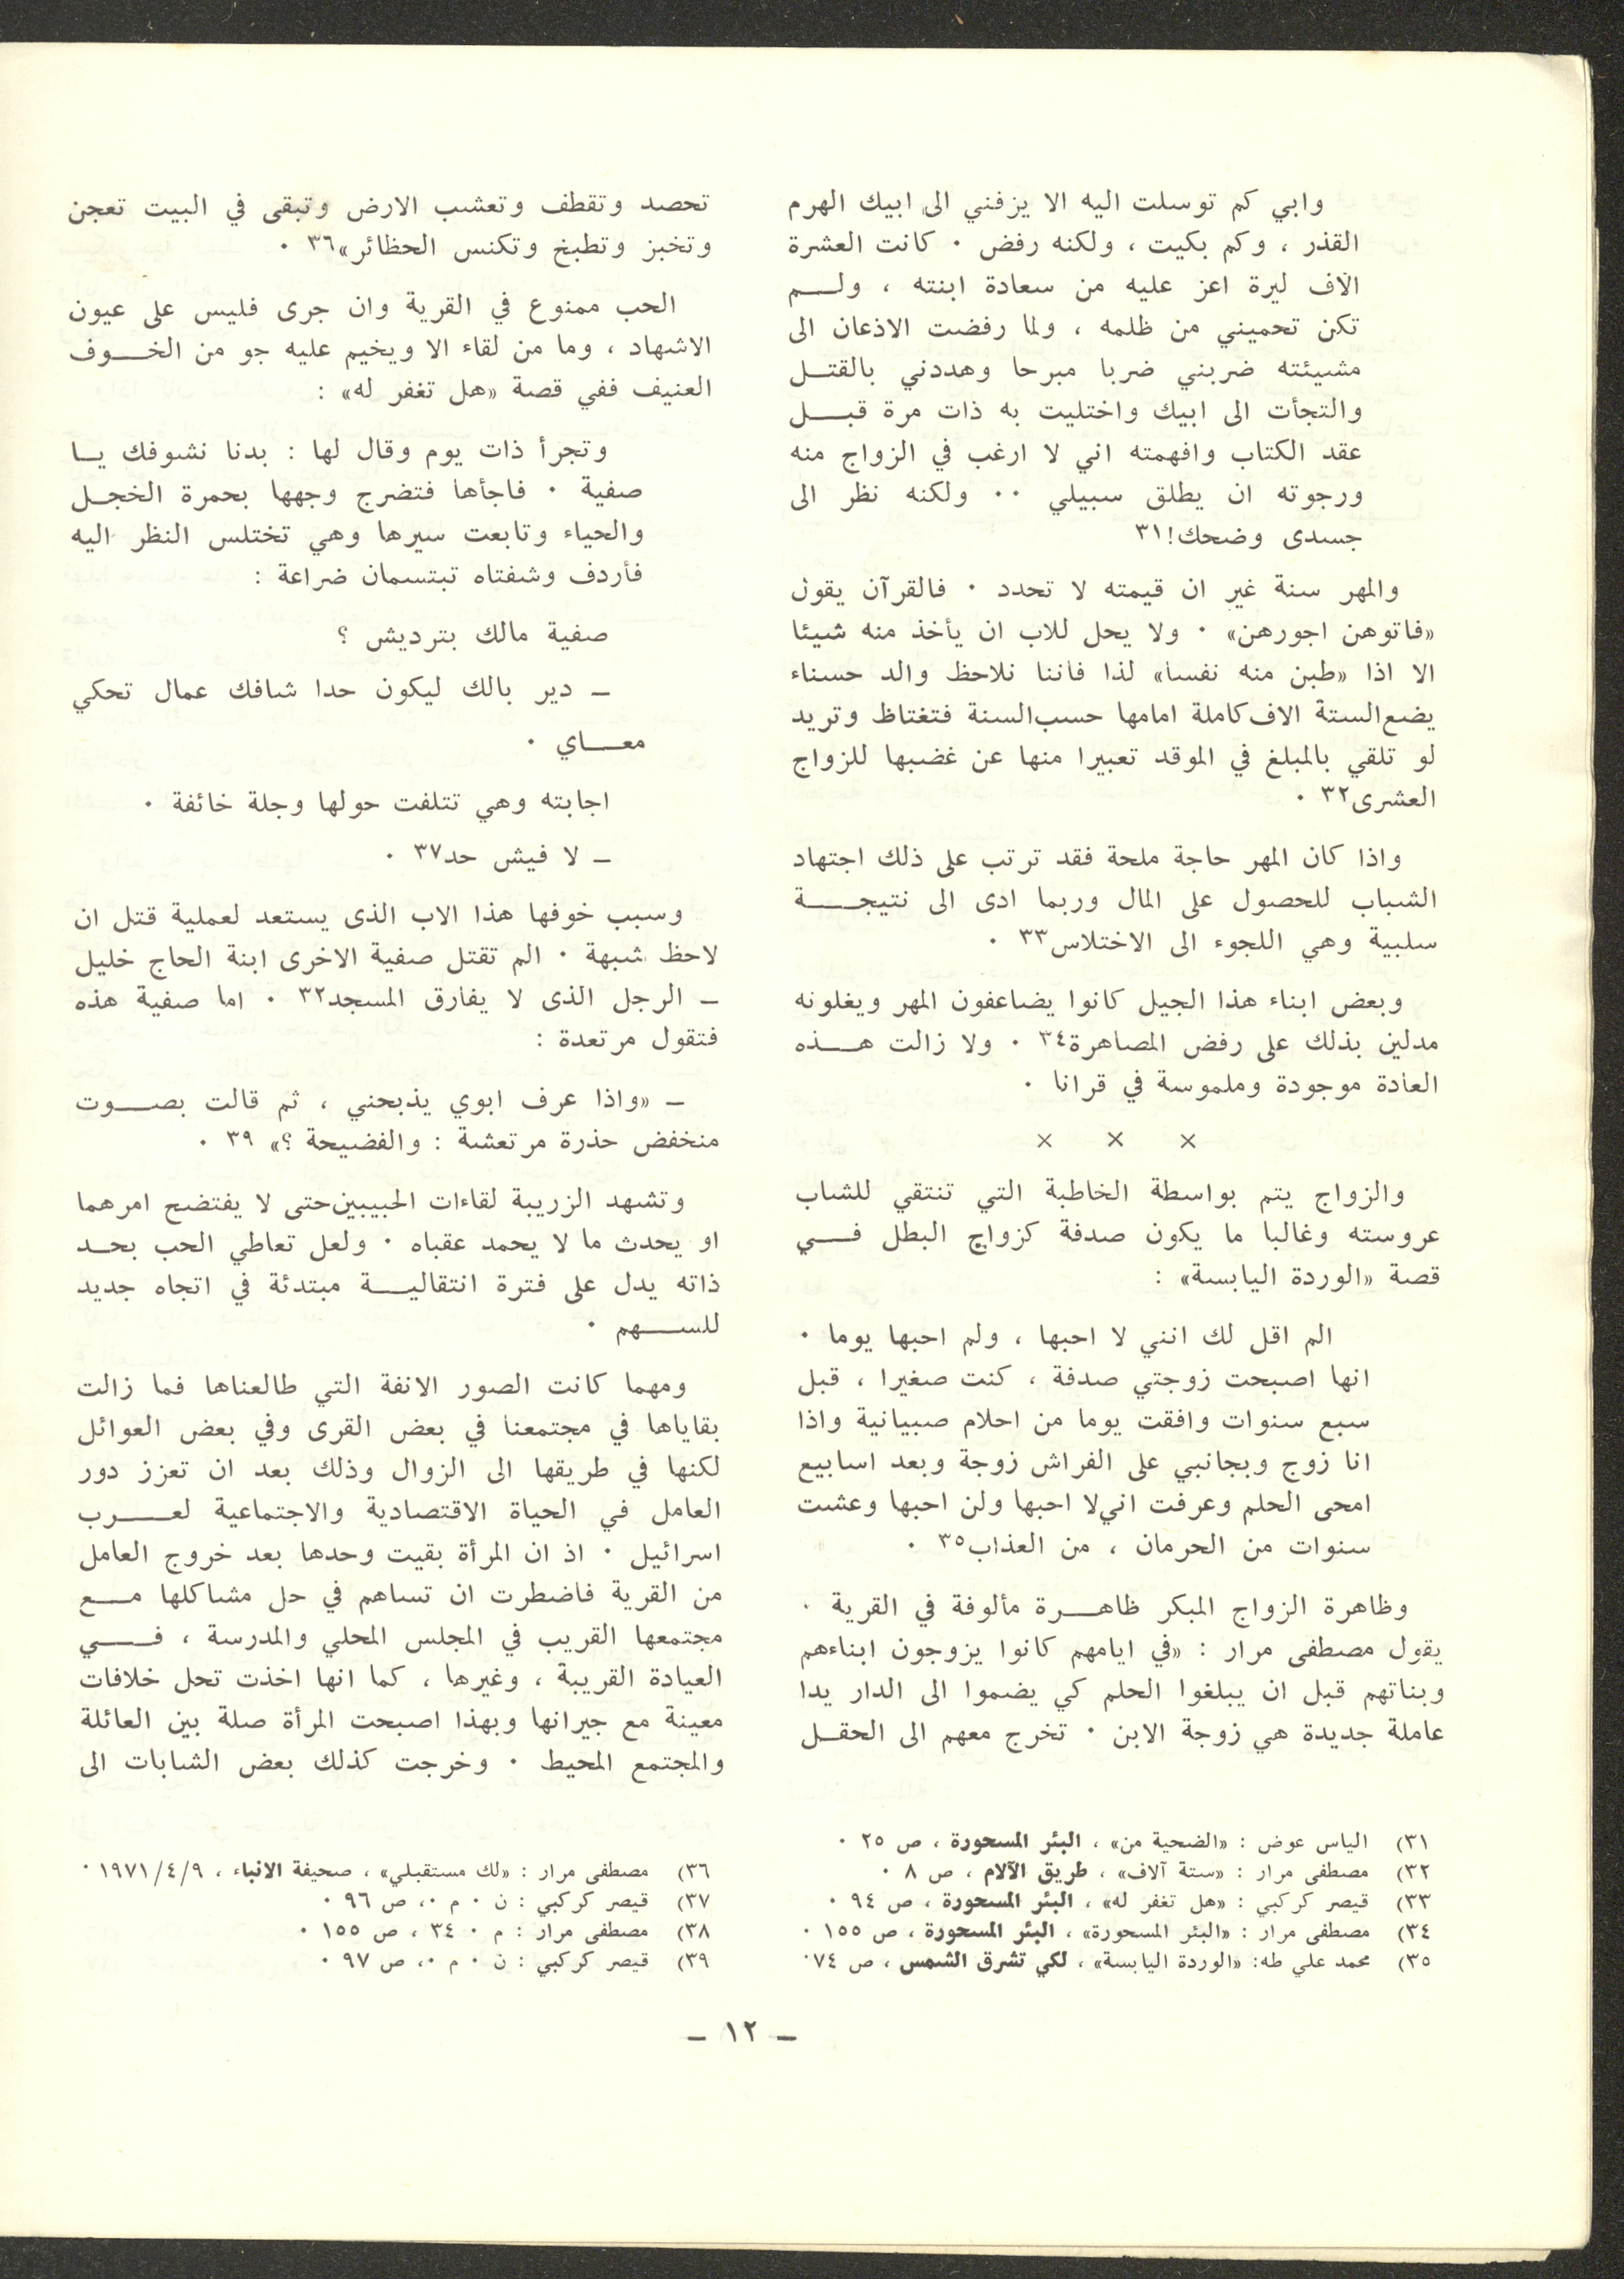 وابي كم توسلت اليه الا يزفني الى ابيك الهرم
القذر ، وكم بكيت ، ولكنه رفض ٠ كانت العشرة
الاف ليرة اعز عليه من سعادة ابنته ، ولم
تكن تحميني من ظلمه ، ولما رفضت الاذعان الى
مشيئته ضربني ضربا مبرحا وهددني بالقتل
والتجأت الى ابيك واختليت به ذات مرة قبل
عقد الكتاب وافهمته اني لا ارغب في الزواج منه
ورجوته ان يطلق سبيلي ٠٠ ولكنه نظر الى
جسدى وضحك!٣١
والمهر سنة غير ان قيمته لا تحدد ٠ فالقرآن يقول
«فاتوهن اجورهن» ٠ ولا يحل للاب ان يأخذ منه شيئا
الا اذا «طبن منه نفسا» لذا فاننا نلاحظ والد حسناء
يضع الستة الاف كاملة امامها حسب السنة فتغتاظ وتريد
لو تلقي بالمبلغ في الموقد تعبيرا منها عن غضبها للزواج
العشرى٣٢ ٠
واذا كان المهر حاجة ملحة فقد ترتب على ذلك اجتهاد
الشباب للحصول على المال وربما ادى الى نتيجة
سلبية وهي اللجوء الى الاختلاس٣٣ ٠
وبعض ابناء هذا الجيل كانوا يضاعفون المهر ويغلونه
مدلين بذلك على رفض المصاهرة٣٤ ٠ ولا زالت هذه
العادة موجودة وملموسة في قرانا ٠
× × ×
والزواج يتم بواسطة الخاطبة التي تنتقي للشاب
عروسته وغالبا ما يكون صدفة كزواج البطل في
قصة «الوردة اليابسة» :
الم اقل لك انني لا احبها ، ولم احبها يوما ٠
انها اصبحت زوجتي صدفة ، كنت صغيرا ، قبل
سبع سنوات وافقت يوما من احلام صبيانية واذا
انا زوج وبجانبي على الفراش زوجة وبعد اسابيع
امحى الحلم وعرفت اني لا احبها ولن احبها وعشت
سنوات من الحرمان ، من العذاب٣٥ ٠
وظاهرة الزواج المبكر ظاهرة مألوفة في القرية ٠
يقول مصطفى مرار : «في ايامهم كانوا يزوجون ابناءهم
وبناتهم قبل ان يبلغوا الحلم كي يضموا الى الدار يدا
عاملة جديدة هي زوجة الابن ٠ تخرج معهم الى الحقل
٣١) الياس عوض : «الضحية من» ، البئر المسحورة ، ص ٢٥ ٠
٣٢) مصطفى مرار : «ستة آلاف» ، طريق الآلام ، ص ٨ ٠
٣٣) قيصر كركبي : «هل تغفر له» ، البئر المسحورة ، ص ٩٤ ٠
٣٤) مصطفى مرار : «البئر المسحورة» ، البئر المسحورة ، ص ١٥٥ ٠
٣٥) محمد علي طه: «الوردة اليابسة» ، لكي تشرق الشمس ، ص ٧٤٠
تحصد وتقطف وتعشب الارض وتبقى في البيت تعجن
وتخبز وتطبخ وتكنس الحظائر»٣٦ ٠
الحب ممنوع في القرية وان جرى فليس على عيون
الاشهاد ، وما من لقاء الا ويخيم عليه جو من الخوف
العنيف ففي قصة «هل تغفر له» :
وتجرأ ذات يوم وقال لها : بدنا نشوفك يا
صفية ٠ فاجأها فتضرج وجهها بحمرة الخجل
والحياء وتابعت سيرها وهي تختلس النظر اليه
فأردف وشفتاه تبتسمان ضراعة :
صفية مالك بترديش ؟
– دير بالك ليكون حدا شافك عمال تحكي
معاي ٠
اجابته وهي تتلفت حولها وجلة خائفة ٠
– لا فيش حد٣٧ ٠
وسبب خوفها هذا الاب الذى يستعد لعملية قتل ان
لاحظ شبهة ٠ الم تقتل صفية الاخرى ابنة الحاج خليل
– الرجل الذى لا يفارق المسجد٣٢ ٠ اما صفية هذه
فتقول مرتعدة :
– «واذا عرف ابوي يذبحني ، ثم قالت بصوت
منخفض حذرة مرتعشة : والفضيحة ؟» ٣٩ ٠
وتشهد الزريبة لقاءات الحبيبين حتى لا يفتضح امرهما
او يحدث ما لا يحمد عقباه ٠ ولعل تعاطي الحب بحد
ذاته يدل على فترة انتقالية مبتدئة في اتجاه جديد
للسهم ٠
ومهما كانت الصور الانفة التي طالعناها فما زالت
بقاياها في مجتمعنا في بعض القرى وفي بعض العوائل
لكنها في طريقها الى الزوال وذلك بعد ان تعزز دور
العامل في الحياة الاقتصادية والاجتماعية لعرب
اسرائيل ٠ اذ ان المرأة بقيت وحدها بعد خروج العامل
من القرية فاضطرت ان تساهم في حل مشاكلها مع
مجتمعها القريب في المجلس المحلي والمدرسة ، في
العيادة القريبة ، وغيرها ، كما انها اخذت تحل خلافات
معينة مع جيرانها وبهذا اصبحت المرأة صلة بين العائلة
والمجتمع المحيط ٠ وخرجت كذلك بعض الشابات الى
٣٦) مصطفى مرار : «لك مستقبلي» ، صحيفة الانباء ، ١٩٧١/٤/٩ ٠
٣٧) قيصر كركبي : ن ٠ م ٠، ص ٩٦ ٠
٣٨) مصطفى مرار : م ٠ ٣٤ ، ص ١٥٥ ٠
٣٩) قيصر كركبي : ن ٠ م ٠، ص ٩٧ ٠
– ١٢ –